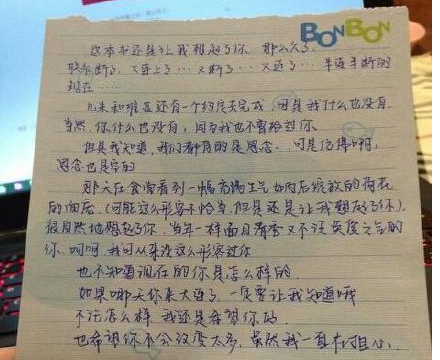 BONBON
这本书还是让我想起了你．那么久了．
联系断了．又连上了…又断了…又连了…半连半断的
现在……
儿来和难直还有一个约定未完成．可是我什么也没有
当然．你什么也没有，因为我也不曾给过你
但是我知道．我们都有的是思念．可是
思念也是
那天在食堂看到一幅充满生气如雨后绽放的荷花
的油画．(可能这么形容不恰当．但是还是让我想起了你)．
很自然地想起了你．当年一样面目清秀又不失英度之气的
你．呵呵．我可从来没这么形容过你
也不知道现在的你是怎么样的
如果哪天你来大连了．一定要让我知道哦
不论怎么样．我还是希望你好
也希望你不会改变太多．虽然我一直在担心．